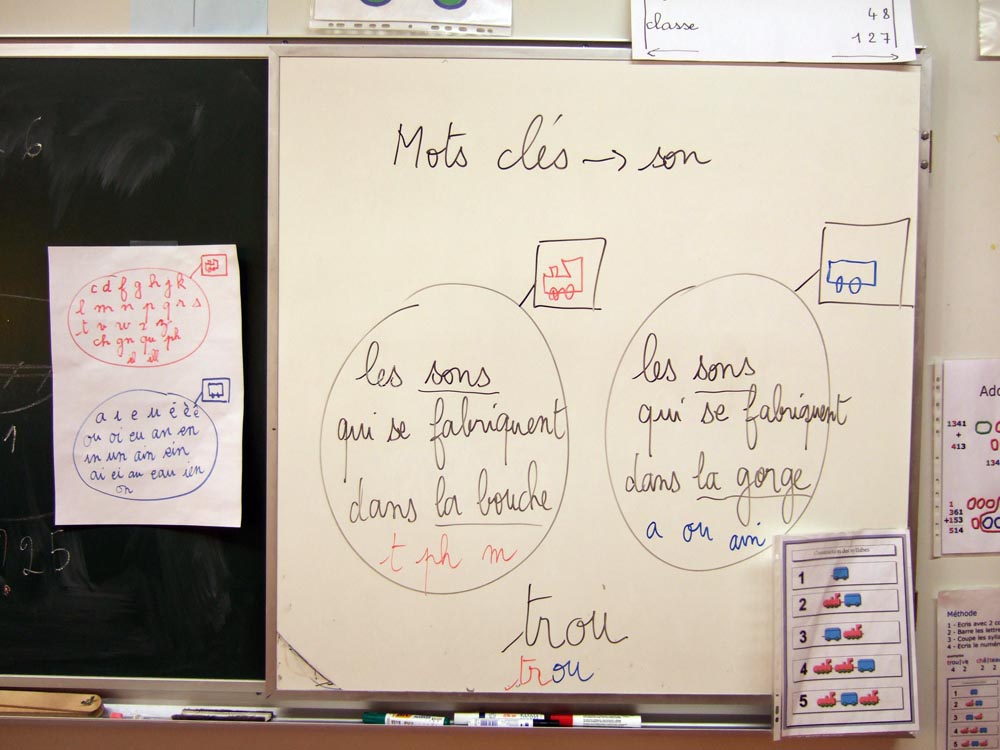 classe
48
127
Mots clés → son
les sons
qui se fabriquent
dans la bouche
t ph m
les sons
qui se fabriquent
dans la gorge
a ou ain
trou
trou
c d f g h j k
l m n p q r s
t v w x z
ch gn qu ph
il ill
a i e u é è ê
ou oi eu an en
in un ain ein
ai ei au eau ien
on
6
1
25
1
2
3
4
5
1341
+
413
1
361
+153
514
Méthode
1 - Ecris avec 2
2 - Barre les
3 - Coupe les
4 - Ecris le
1
2
3
4
5